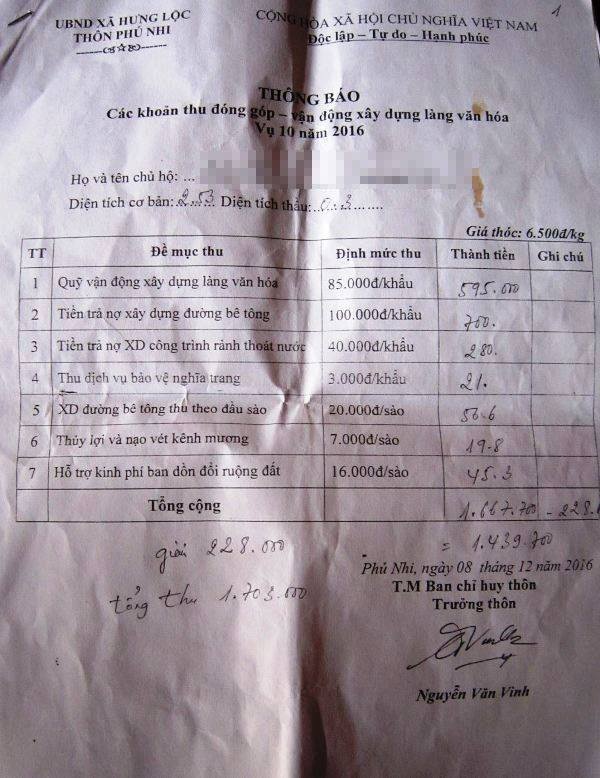 1
UBND XÃ HƯNG LỘC
THÔN PHÚ NHI
CỘNG HÒA XÃ HỘI CHỦ NGHĨA VIỆT NAM
Độc lập – Tự do – Hạnh phúc
THÔNG BÁO
Các khoản thu đóng góp – vận động xây dựng làng văn hóa
Vụ 10 năm 2016
Họ và tên chủ hộ: ...
Diện tích cơ bản: 2.53 Diện tích thầu:..0.3.......
Giá thóc: 6.500đ/kg
TT Đề mục thu Định mức thu Thành tiền Ghi chú
1 Quỹ vận động xây dựng làng văn hóa 85.000đ/khẩu 595.000
2 Tiền trả nợ xây dựng đường bê tông 100.000đ/khẩu 700.
3 Tiền trả nợ XD công trình rãnh thoát nước 40.000đ/khẩu 280.
4 Thu dịch vụ bảo vệ nghĩa trang 3.000đ/khẩu 21.
5 XD đường bê tông thu theo đầu sào 20.000đ/sào 56.6
6 Thủy lợi và nạo vét kênh mương 7.000đ/sào 19.8
7 Hỗ trợ kinh phí ban dồn đổi ruộng đất 16.000đ/sào 45.3
Tổng cộng 1.667.700 - 228.
= 1.439.700
giải 228.000
tổng thu 1.703.000
Phú Nhi, ngày 08 tháng 12 năm 2016
T.M Ban chỉ huy thôn
Trưởng thôn
Nguyễn Văn Vinh